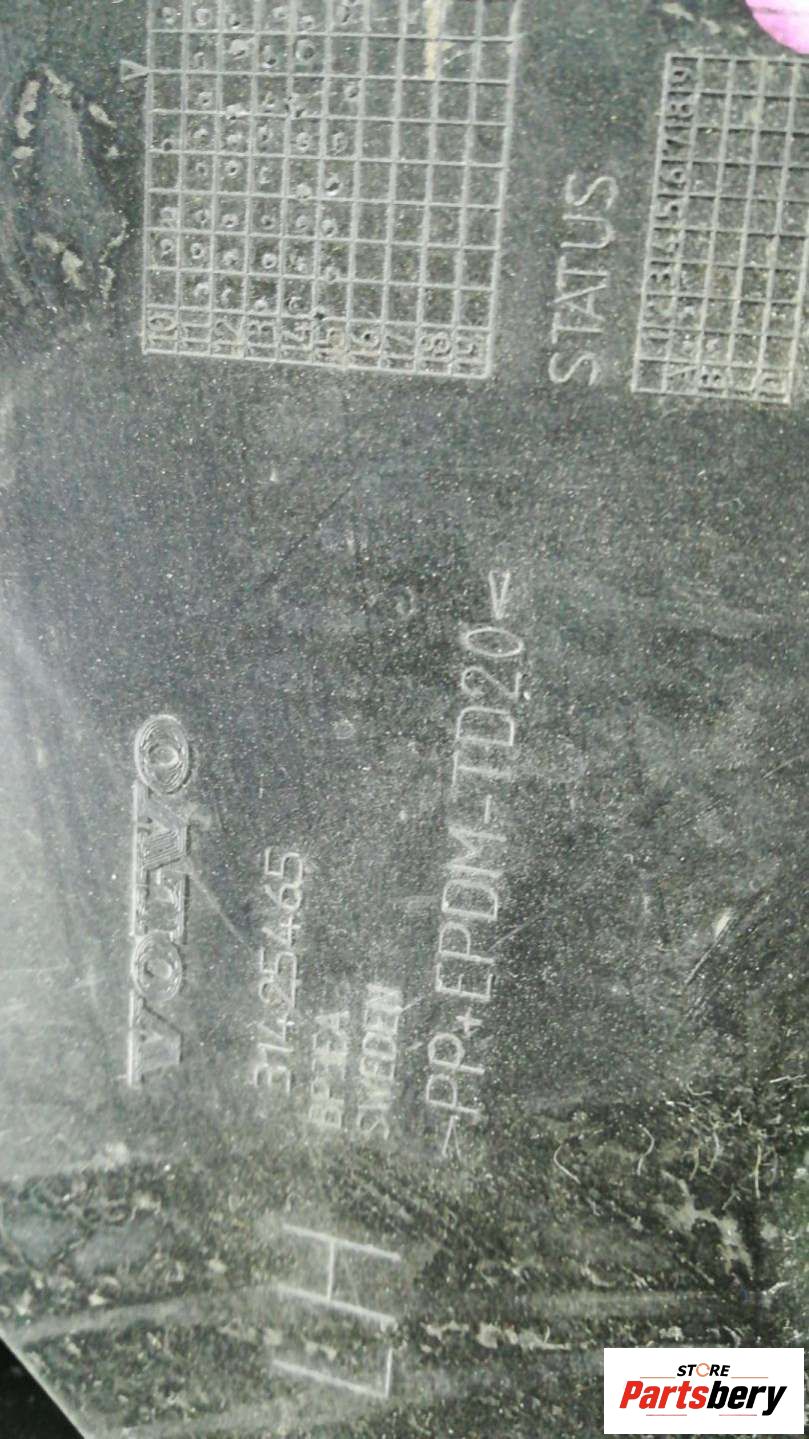 10
11
12
13
14
15
16
17
18
19
STATUS
1 2 3 4 5 6 7 8 9
A
B
D
VOLVO
31425465
SWEDEN
>PP+EPDM-TD20<
LH
STORE
Partsbery